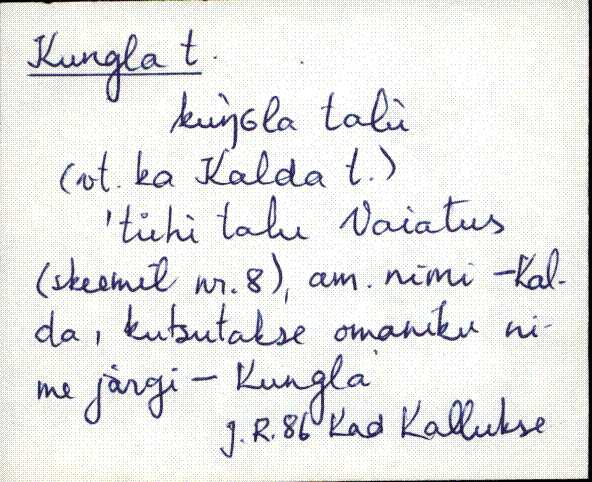 Kungla t.
kuŋGla talù
(vt. ka Kalda t.)
'tühi talu Vaiatus
(skeemil nr. 8), am. nimi - Kal-
da, kutsutakse omaniku ni-
me järgi - Kungla'
J. R. 86 Kad Kallukse